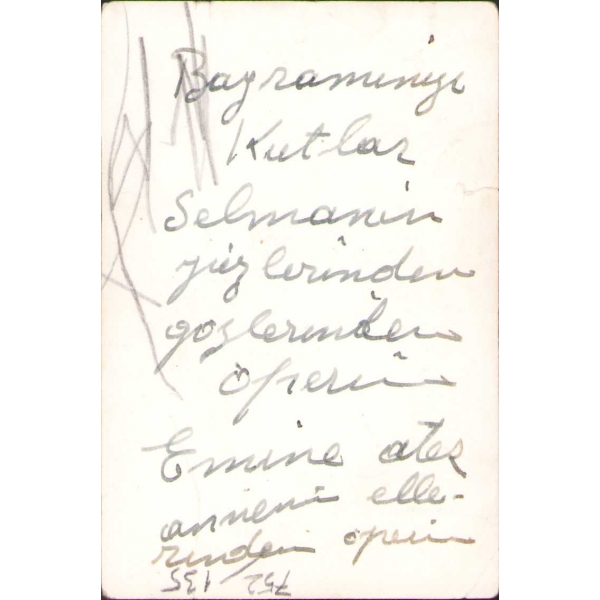 Bayramınızı
Kutlar
Selmanın
yüzlerinden
gözlerinden
öperim
Emine ateş
annemi elle-
rinden öperim
752 135